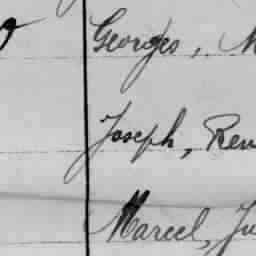 Georges, M
Joseph, Ren
Marcel, Ju